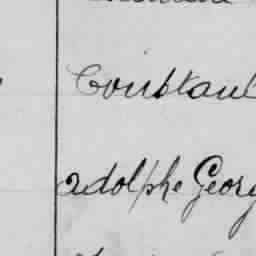 Constant
Adolphe Georg